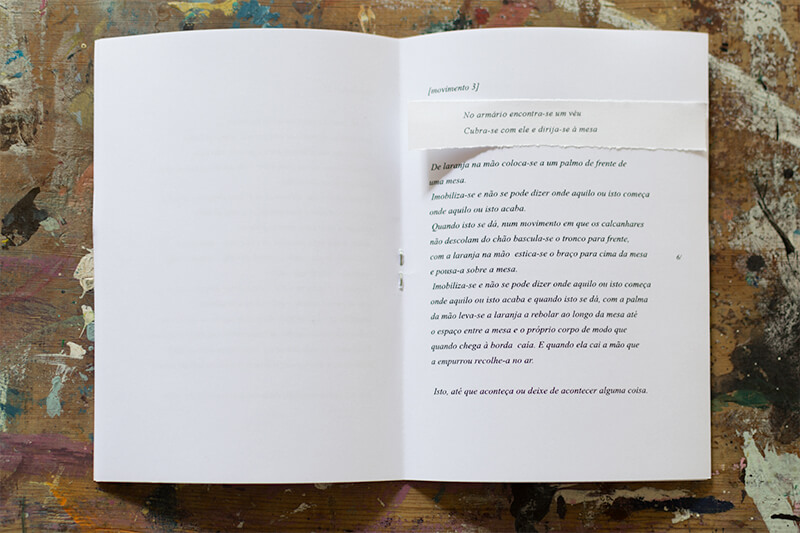 [movimento 3]
No armário encontra-se um véu
Cubra-se com ele e dirija-se à mesa
De laranja na mão coloca-se a um palmo de frente de
uma mesa.
Imobiliza-se e não se pode dizer onde aquilo ou isto começa
onde aquilo ou isto acaba.
Quando isto se dá, num movimento em que os calcanhares
não descolam do chão bascula-se o tronco para frente,
com a laranja na mão estica-se o braço para cima da mesa
e pousa-a sobre a mesa.
Imobiliza-se e não se pode dizer onde aquilo ou isto começa
onde aquilo ou isto acaba e quando isto se dá, com a palma
da mão leva-se a laranja a rebolar ao longo da mesa até
o espaço entre a mesa e o próprio corpo de modo que
quando chega à borda caia. E quando ela cai a mão que
a empurrou recolhe-a no ar.
Isto, até que aconteça ou deixe de acontecer alguma coisa.